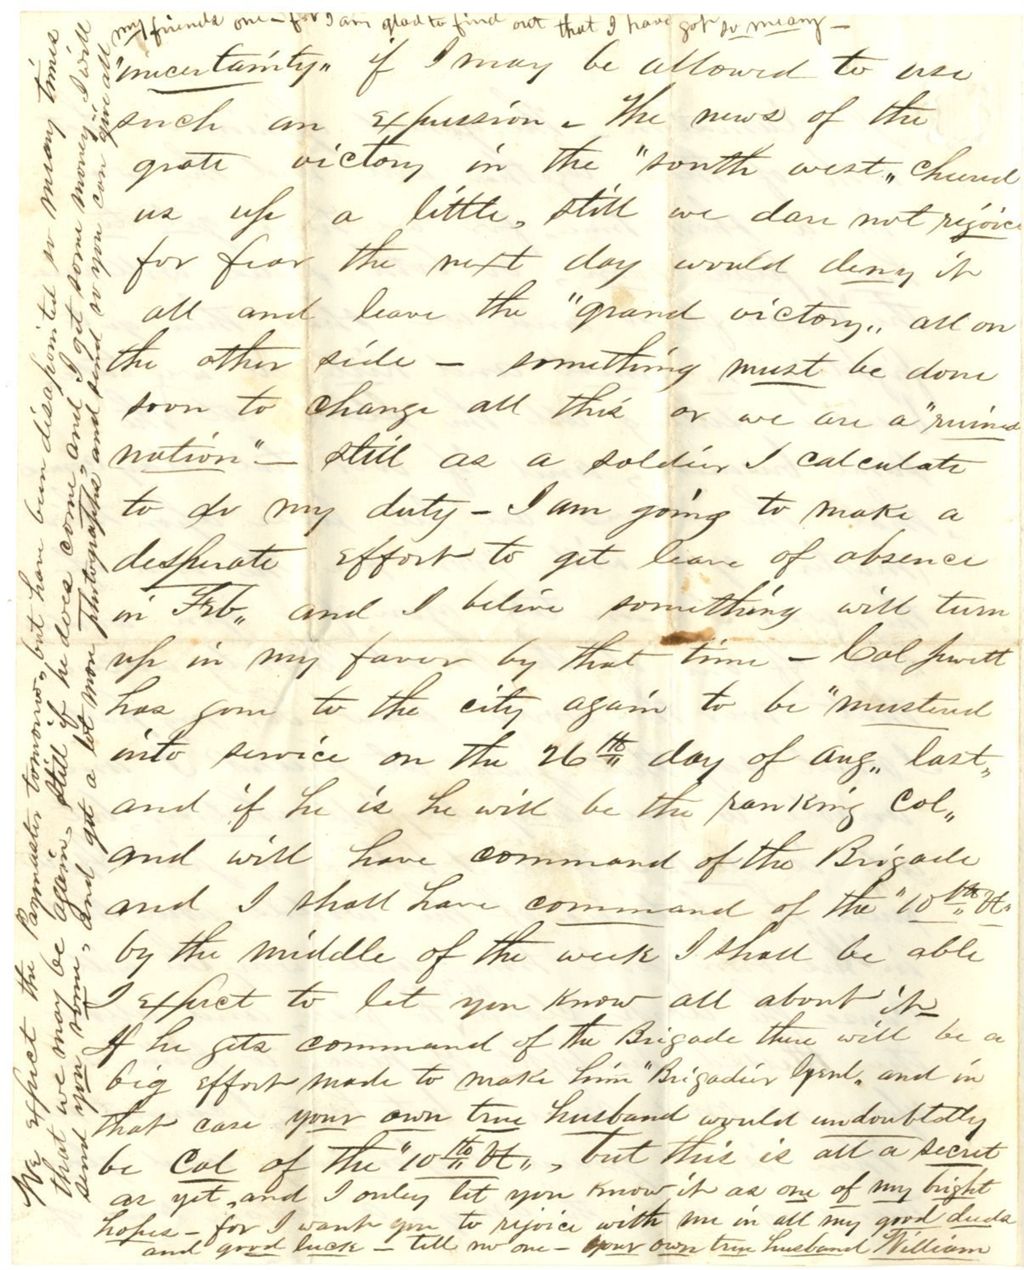 my friends one – for I am glad to find out that I have got so meany –
"uncertainity„ if I may be allowed to use
such an expression – the news of the
grate victory in the "south west„ cheered
us up a little, still we dare not rejoice
for fear the next day would deny it
all and leave the "grand victory„ all on
the other side – something must be done
soon to change all this or we are a "ruined
nation" – still as a soldier I calculate
to do my duty – I am going to make a
desperate effort to get leave of absence
in Feb„ and I belive something will turn
up in my favor by that time – Col Jewett
has gone to the city again to be "mustered
into service on the 26th day of Aug„ last„
and if he is he will be the ranking Col„
and will have command of the Brigade
and I shall have command of the "10th Vt„
by the middle of the week I shall be able
I expect to let you know all about it
If he gets command of the Brigade there will be a
big effort made to make him "Brigadier Genl„ and in
that case your own true husband would undoubtdly
be Col of the "10th Vt„, but this is all a secret
as yet, and I onley let you know it as one of my bright
hopes – for I want you to rejoice with me in all my good deeds
and good luck – tell no one – your own true husband William
We expect the Paymaster tomorrow, but have been disapointed so meany times
that we may be again, still if he does come, and I get some money I will
send you some, and get a lot more photographs and send so you can give all